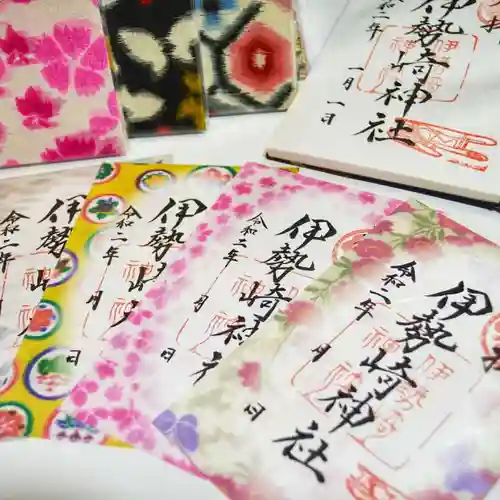 令和二年
伊勢崎神社
一月一日
令和二年
伊勢
月
日
令和二年
伊勢
月
日
令和二年
伊勢崎神社
月
日
令和二年
伊勢崎神社
月
日